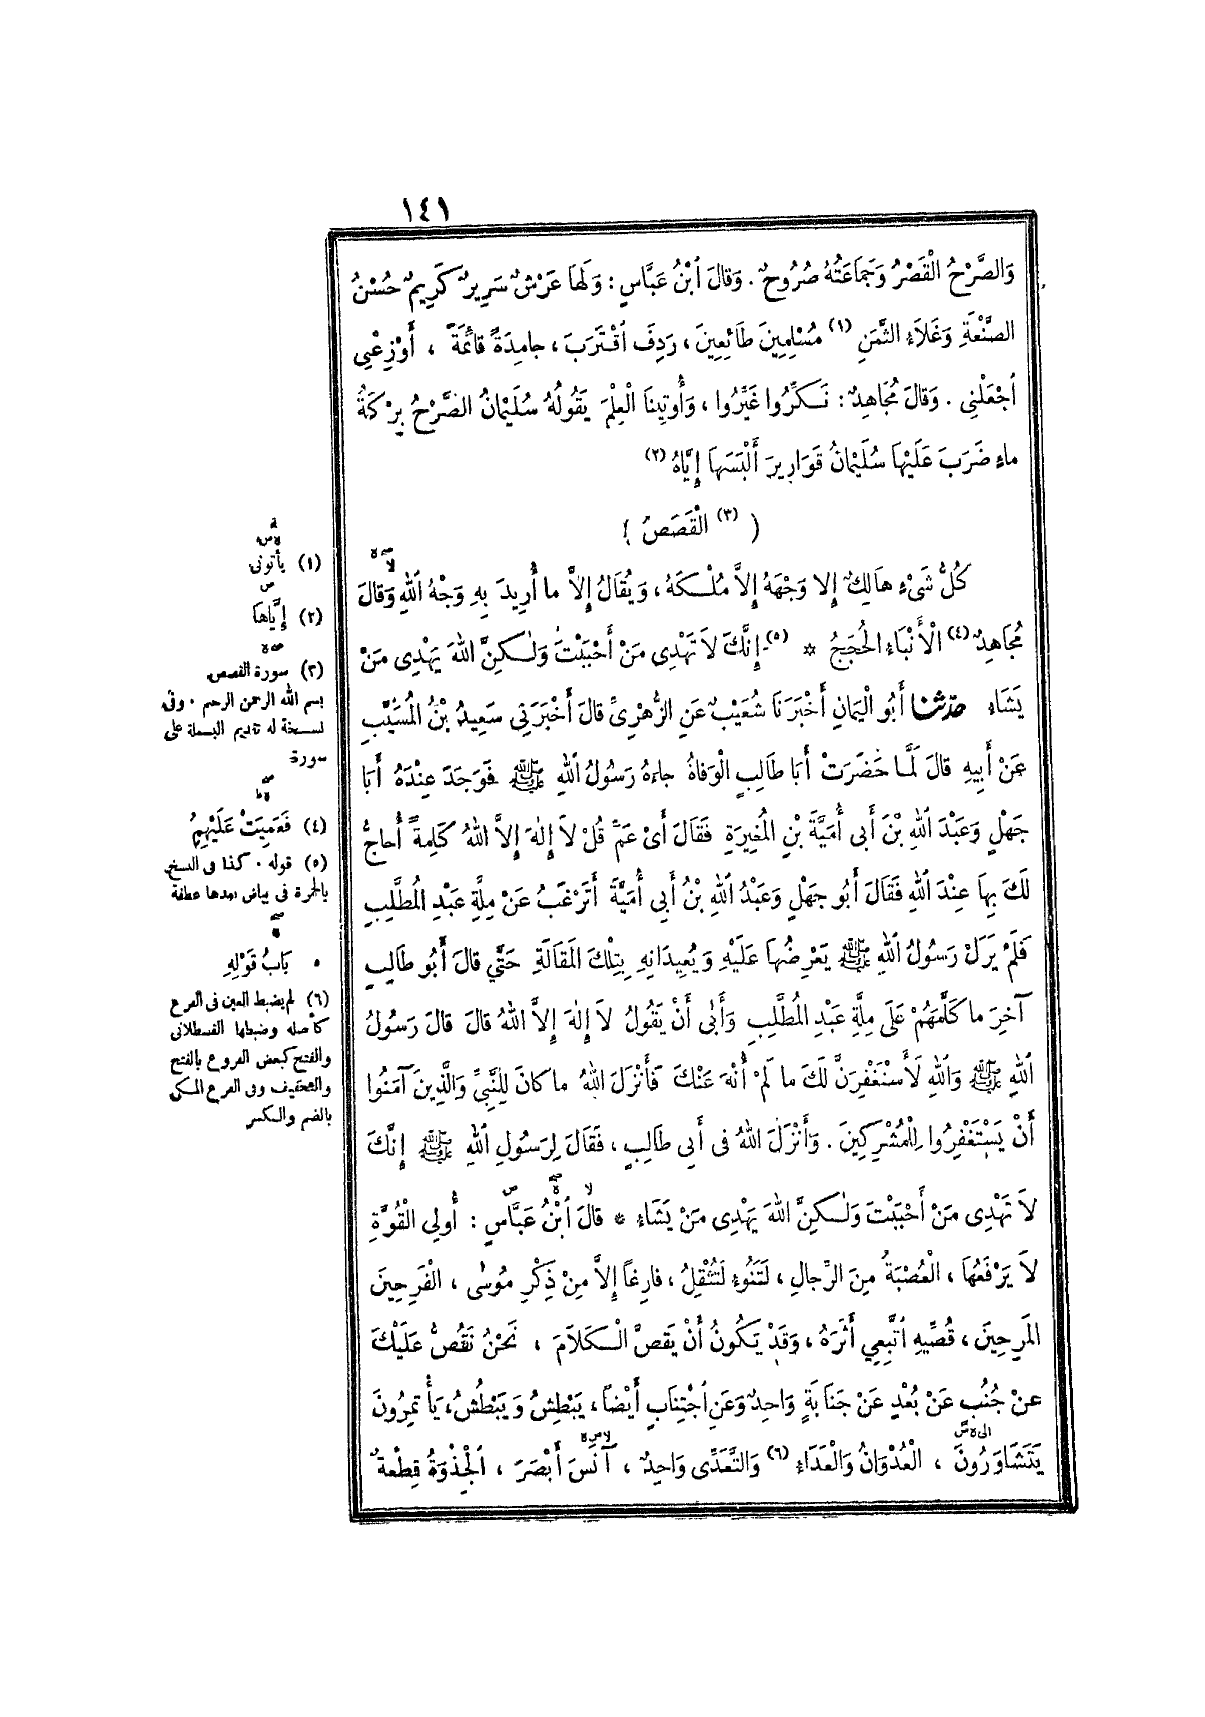 ١٤١
وَالصَّرْحُ الْقَصْرُ وَجَمَاعَتُهُ صُرُوحٌ . وَقَالَ ٱبْنُ عَبَّاسٍ : وَلَهَا عَرْشٌ سَرِيرٌ كَرِيمٌ حُسْنُ
الصَّنْعَةِ وَغَلَاءُ الثَّمَنِ (١) مُسْلِمِينَ طَائِعِينَ ، رَدِفَ ٱقْتَرَبَ ، جامِدَةً قائِمَةً ، أَوْزِعْنِي
ٱجْعَلْنِي . وَقالَ مُجَاهِدٌ : نَكِّرُوا غَيِّرُوا ، وَأُوتِينَا الْعِلْمَ يَقُولُهُ سُلَيْمانُ الصَّرْحُ بِرْكَةُ
ماءٍ ضَرَبَ عَلَيْهَا سُلَيْمانُ قَوَارِيرَ أَلْبَسَهَا إِيَّاهُ (٢)
( (٣) الْقَصَصُ )
كُلُّ شَىْءٍ هَالِكٌ إِلا وَجْهَهُ إِلاَّ مُلْكَهُ ، وَيُقَالُ إِلاَّ ما أُرِيدَ بِهِ وَجْهُ ٱللهِ وَقالَ
مُجَاهِدٌ (٤) الْأَنْبَاءُ الْحُجَجُ * (٥) إِنَّكَ لاَ تَهْدِى مَنْ أَحْبَبْتَ وَلٰكِنَّ اللهَ يَهْدِى مَنْ
يَشَاءُ حدّثنا أَبُو الْيَمانِ أَخْبَرَنَا شُعَيْبٌ عَنِ الزُّهْرِىِّ قالَ أَخْبَرَنِي سَعِيدُ بْنُ المُسَيَّبِ
عَنْ أَبِيهِ قالَ لَمَّا حَضَرَتْ أَبَا طَالِبٍ الْوَفاةُ جاءَهُ رَسُولُ ٱللهِ ﷺ فَوَجَدَ عِنْدَهُ أَبَا
جَهْلٍ وَعَبْدَ ٱللهِ بْنَ أَبِي أُمَيَّةَ بْنِ المُغِيرَةِ فَقَالَ أَىْ عَمِّ قُلْ لاَ إِلٰهَ إِلاَّ اللهُ كَلِمَةً أُحاجُّ
لَكَ بِهَا عِنْدَ ٱللهِ فَقَالَ أَبُو جَهْلٍ وَعَبْدُ ٱللهِ بْنُ أَبِي أُمَيَّةَ أَتَرْغَبُ عَنْ مِلَّةِ عَبْدِ المُطَّلِبِ
فَلَمْ يَزَلْ رَسُولُ ٱللهِ ﷺ يَعْرِضُهَا عَلَيْهِ وَيُعِيدَانِهِ بِتِلْكَ المَقَالَةِ حَتَّي قالَ أَبُو طَالِبٍ
آخِرَ ما كَلَّمَهُمْ عَلَى مِلَّةِ عَبْدِ المُطَّلِبِ وَأَبٰى أَنْ يَقُولُ لاَ إِلٰهَ إِلاَّ اللهُ قالَ قالَ رَسُولُ
ٱللهِ ﷺ وَٱللهِ لَأَسْتَغْفِرَنَّ لَكَ ما لَمْ أُنْهَ عَنْكَ فَأَنْزَلَ اللهُ ما كانَ لِلنَّبِيِّ وَالَّذِينَ آمَنُوا
أَنْ يَسْتَغْفِرُوا لِلْمُشْرِكِينَ . وَأَنْزَلَ اللهُ فِى أَبِي طَالِبٍ ، فَقَالَ لِرَسُولِ ٱللهِ ﷺ إِنَّكَ
لاَ تَهْدِى مَنْ أَحْبَبْتَ وَلٰكِنَّ اللهَ يَهْدِى مَنْ يَشَاءُ * قالَ ٱبْنُ عَبَّاسٍ : أُولِي الْقُوَّةِ
لاَ يَرْفَعُهَا ، الْعُصْبَةُ مِنَ الرِّجالِ ، لَتَنُوءُ لَتُثْقِلُ ، فارِغًا إِلاَّ مِنْ ذِكْرِ مُوسٰى ، الْفَرِحِينَ
المَرِحِينَ ، قُصِّيهِ ٱتَّبِعِي أَثَرَهُ ، وَقَدْ يَكُونُ أَنْ يَقُصَّ الْكَلاَمَ ، نَحْنُ نَقُصُّ عَلَيْكَ
عَنْ جُنُبٍ عَنْ بُعْدٍ عَنْ جَنَابَةٍ وَاحِدٌ وَعَنِ ٱجْتِنَابٍ أَيْضًا ، يَبْطِشُ وَيَبْطُشُ ، يَأْتَمِرُونَ
يَتَشَاوَرُونَ ، الْعُدْوَانُ وَالْعَدَاءُ (٦) وَالتَّعَدِّى وَاحِدٌ ، آنَسَ أَبْصَرَ ، ٱلْجِذْوَةُ قِطْعَةٌ
(١) يأتونى
(٢) إِيَّاهَا
(٣) سورة القصص
بسم الله الرحمن الرحيم . وفى
نسخة له تقديم البسملة على
سورة
(٤) فَعَمِيَتْ عَلَيْهِمُ
(٥) قوله . كذا فى النسخ
بالحمرة فى بياض بعدها عطفة
٥ بَابُ قَوْلِهِ
(٦) لم يضبط العين فى الفرع
كأصله وضبطها القسطلانى
والفتح كبعض الفروع بالفتح
والتخفيف وفى الفرع المكى
بالضم والكسر